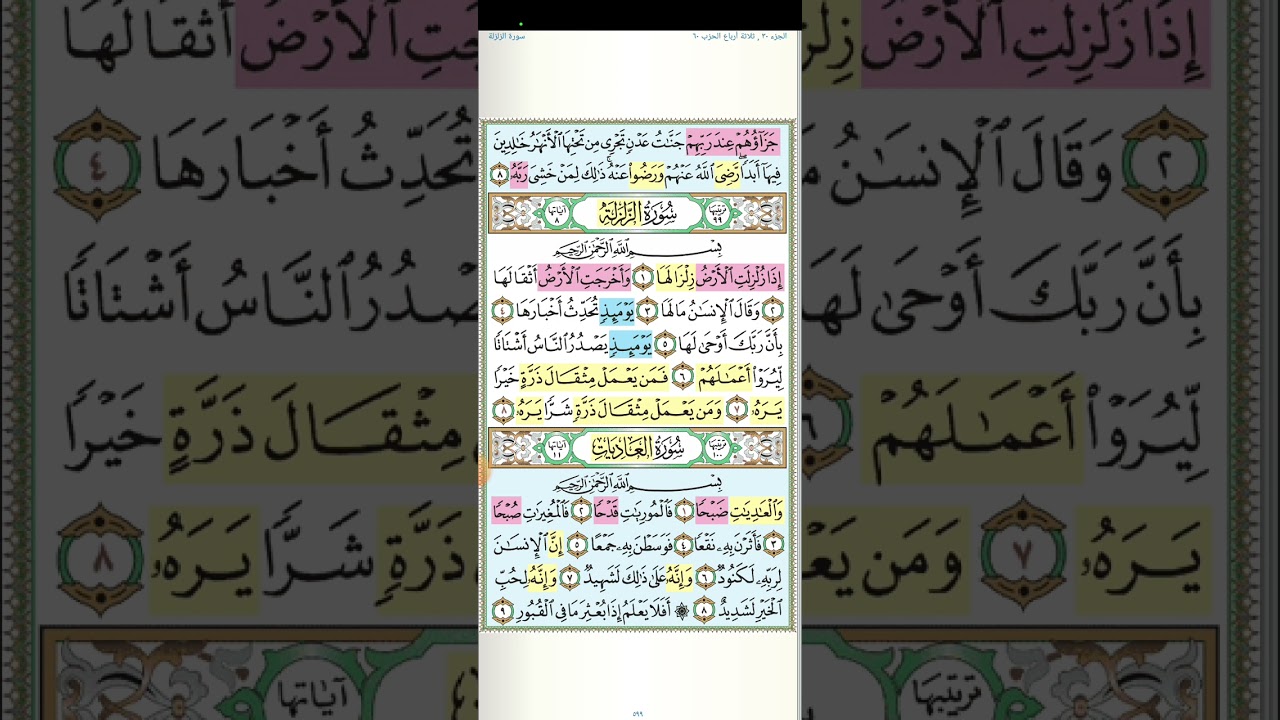 الجزء ٣٠ , ثلاثة أرباع الحزب ٦٠
سورة الزلزلة
جَزَآؤُهُمۡ عِندَ رَبِّهِمۡ جَنَّٰتُ عَدۡنٖ تَجۡرِي مِن تَحۡتِهَا ٱلۡأَنۡهَٰرُ خَٰلِدِينَ
فِيهَآ أَبَدٗاۖ رَّضِيَ ٱللَّهُ عَنۡهُمۡ وَرَضُواْ عَنۡهُۚ ذَٰلِكَ لِمَنۡ خَشِيَ رَبَّهُۥ ٨
ترتيبها ٩٩ سُورَةُ الزَّلْزَلَةِ آياتها ٨
بِسۡمِ ٱللَّهِ ٱلرَّحۡمَٰنِ ٱلرَّحِيمِ
إِذَا زُلۡزِلَتِ ٱلۡأَرۡضُ زِلۡزَالَهَا ١ وَأَخۡرَجَتِ ٱلۡأَرۡضُ أَثۡقَالَهَا
٢ وَقَالَ ٱلۡإِنسَٰنُ مَا لَهَا ٣ يَوۡمَئِذٖ تُحَدِّثُ أَخۡبَارَهَا ٤
بِأَنَّ رَبَّكَ أَوۡحَىٰ لَهَا ٥ يَوۡمَئِذٖ يَصۡدُرُ ٱلنَّاسُ أَشۡتَاتٗا
لِّيُرَوۡاْ أَعۡمَٰلَهُمۡ ٦ فَمَن يَعۡمَلۡ مِثۡقَالَ ذَرَّةٍ خَيۡرٗا
يَرَهُۥ ٧ وَمَن يَعۡمَلۡ مِثۡقَالَ ذَرَّةٖ شَرّٗا يَرَهُۥ ٨
ترتيبها ١٠٠ سُورَةُ العَادِيَاتِ آياتها ١١
بِسۡمِ ٱللَّهِ ٱلرَّحۡمَٰنِ ٱلرَّحِيمِ
وَٱلۡعَٰدِيَٰتِ ضَبۡحٗا ١ فَٱلۡمُورِيَٰتِ قَدۡحٗا ٢ فَٱلۡمُغِيرَٰتِ صُبۡحٗا
٣ فَأَثَرۡنَ بِهِۦ نَقۡعٗا ٤ فَوَسَطۡنَ بِهِۦ جَمۡعًا ٥ إِنَّ ٱلۡإِنسَٰنَ
لِرَبِّهِۦ لَكَنُودٞ ٦ وَإِنَّهُۥ عَلَىٰ ذَٰلِكَ لَشَهِيدٞ ٧ وَإِنَّهُۥ لِحُبِّ
ٱلۡخَيۡرِ لَشَدِيدٌ ٨ ۞ أَفَلَا يَعۡلَمُ إِذَا بُعۡثِرَ مَا فِي ٱلۡقُبُورِ ٩
٥٩٩